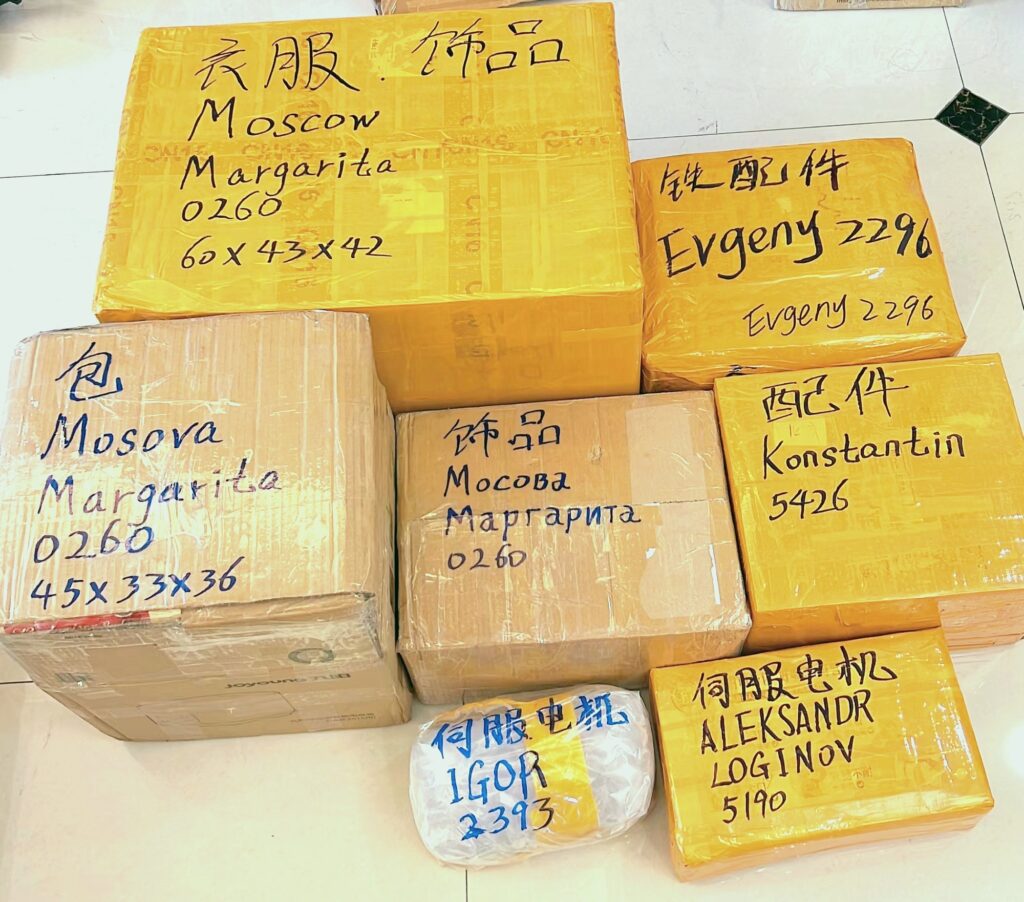 衣服.饰品
Moscow
Margarita
0260
60x43x42
铁配件
Evgeny 2296
Evgeny 2296
包
Mosova
Margarita
0260
45x33x36
Joyoung 九阳
饰品
Мосова
Маргарита
0260
配件
Konstantin
5426
伺服电机
IGOR
2393
伺服电机
ALEKSANDR
LOGINOV
5190